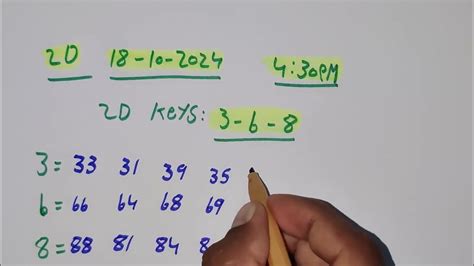 2D 18-10-2024 4:30PM
2D KEYS: 3-6-8
3= 33 31 39 35
6= 66 64 68 69
8= 88 81 84 8